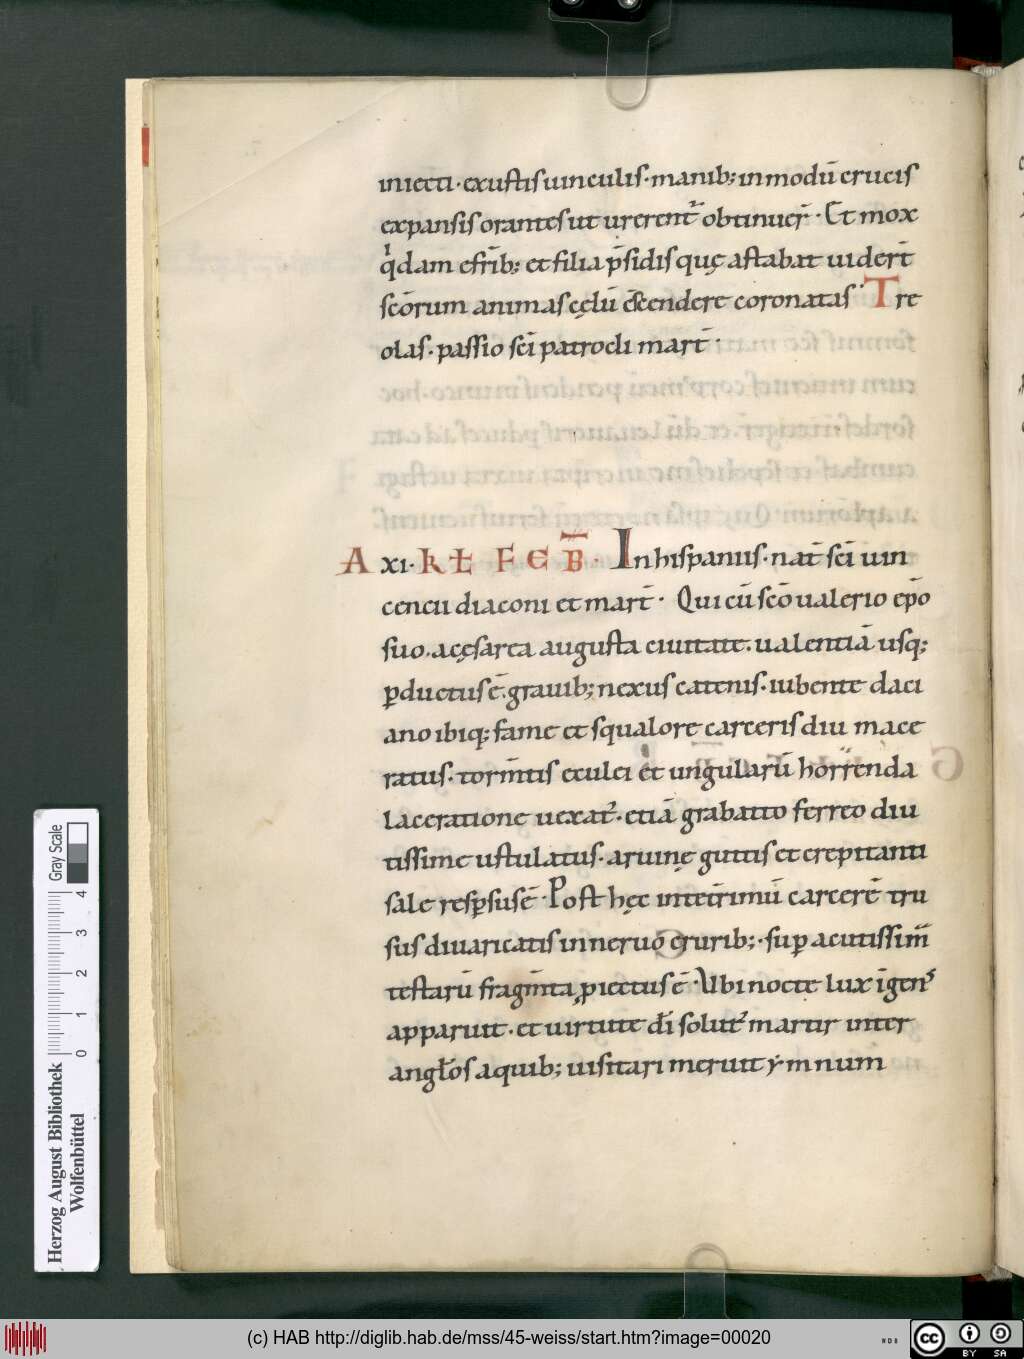 iniecti· exustis uinculis· manib; in modū crucis
expansis orantes ut urerent᷑ obtinuer̄· Et mox
qͥdam ef̄rib; et filia p̄sidis quę astabat uider̄t
scōrum animas cęlū ascendere coronatas· Tre
olas· passio sc̄i patrocli mart̄·
A xi· kł FEB̄· In hispaniis· nat̄ sc̄i uin
cencii diaconi et mart̄· Qui cū scō ualerio ep̄o
suo. a cęsarea augusta ciuitate. ualentiā usq;
ꝑductus ē. grauib; nexus catenis· iubente daci
ano ibiq; fame et squalore carceris diu mace
ratus· torm̄tis eculei et ungularū horrenda
laceratione uexat᷑· etiā grabatto ferreo diu
tissime ustulatus· aruinę guttis et crepitanti
sale respersus ē· Post hęc inter̄imū carcerē tru
sus diuaricatis in neruo crurib;· suꝑ acutissim̄
testarū fragm̄ta piectus ē· Ubi nocte lux īgens
apparuit· et uirtute dī solut᷑ martir inter
angłos a quib; uisitari meruit ẏmnum
Gray Scale
4
3
2
1
0
Herzog August Bibliothek
Wolfenbüttel
(c) HAB http://diglib.hab.de/mss/45-weiss/start.htm?image=00020
cc
BY SA